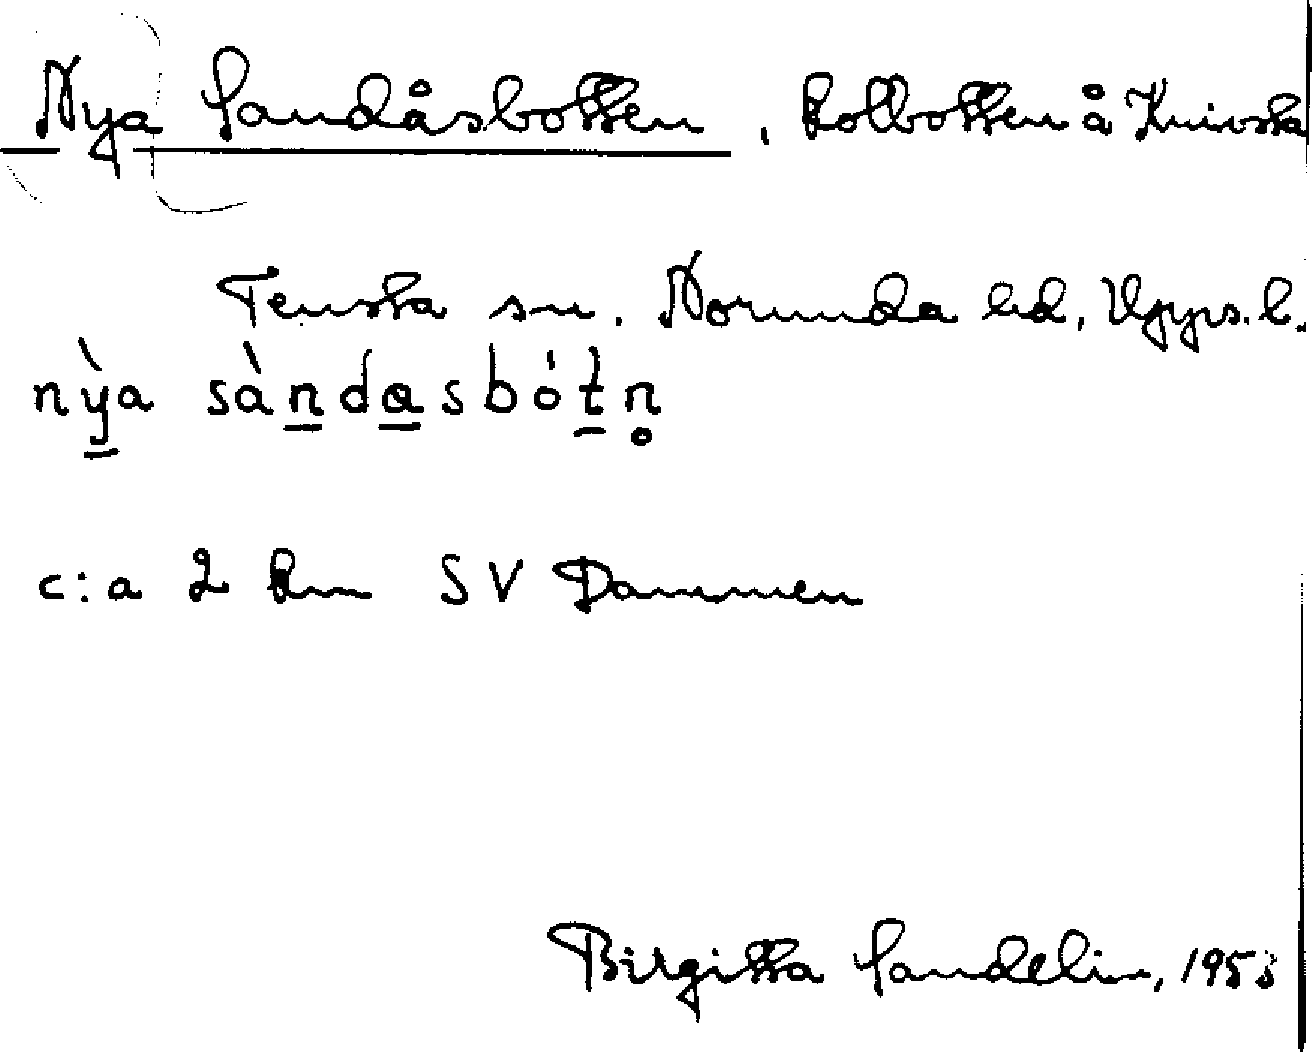 Nya Sandåsbotten, kolbotten å Knivsta
Tensta sn. Norunda hd, Upps. l.
nỳa sàndasbótn̥
c:a 2 km SV Dammen
Birgitta Sandelin, 1953